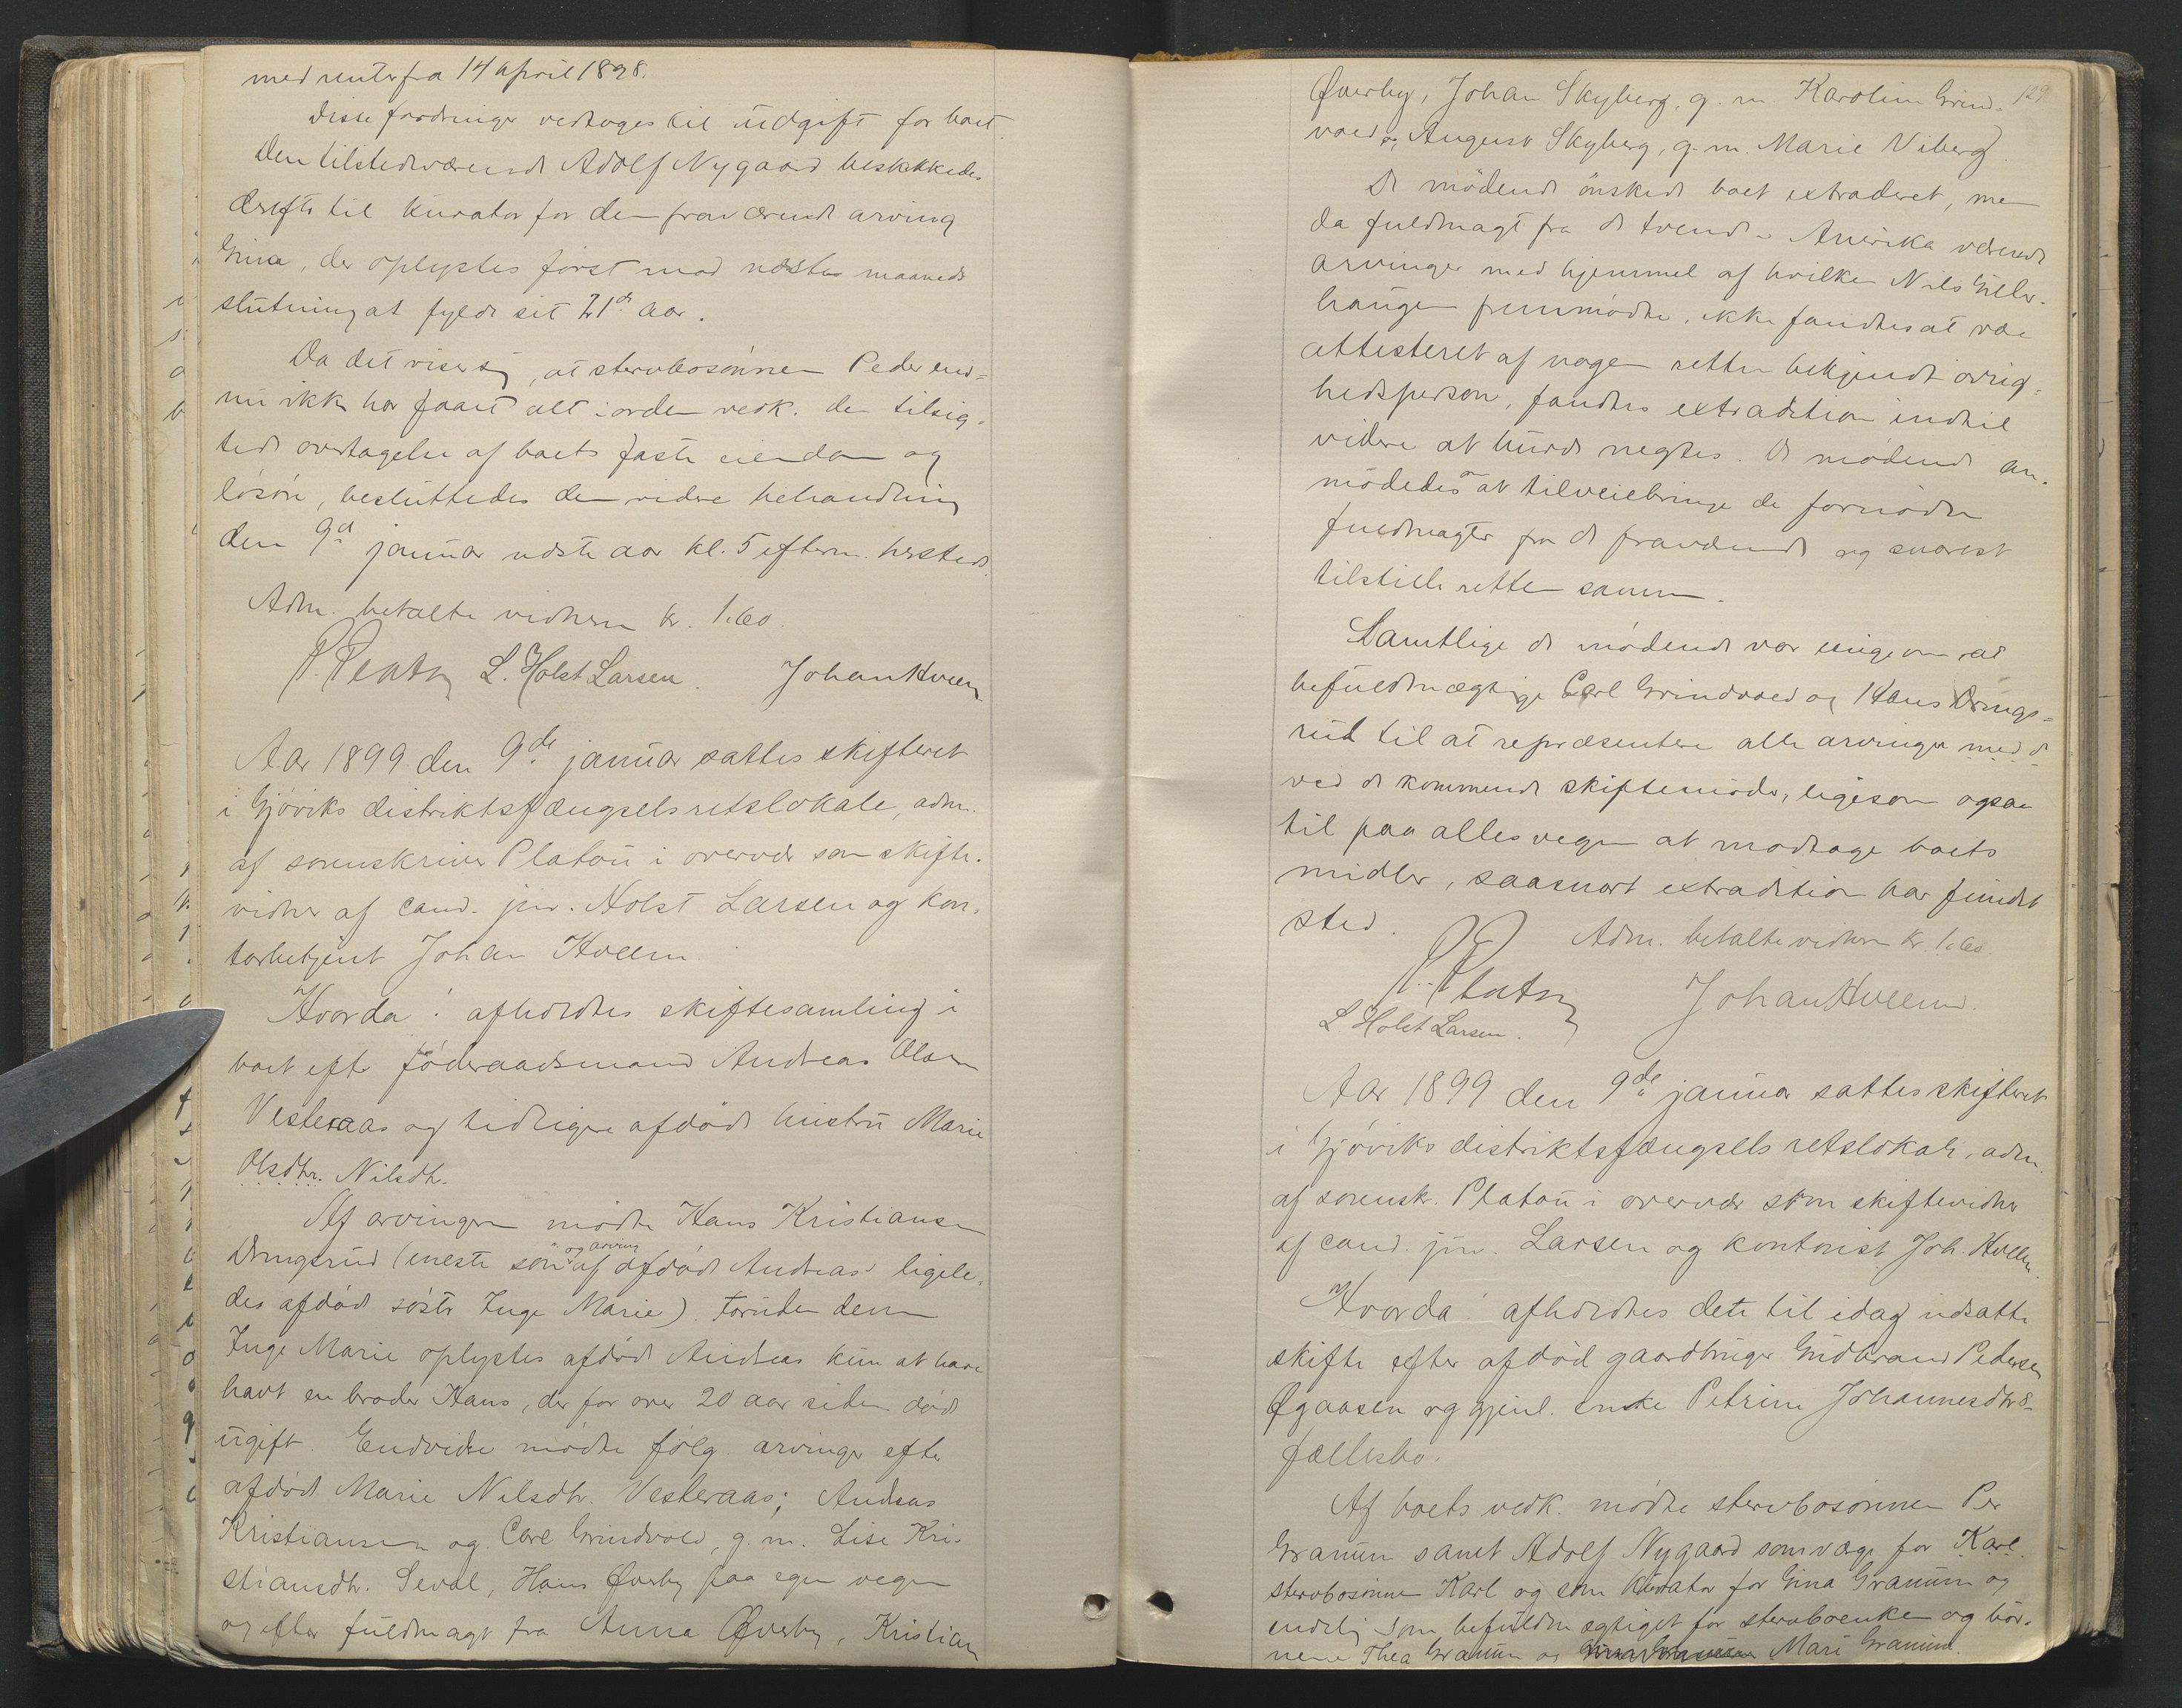 med renter fra 14 april 1898.
Disse fordringer vedtoges til udgift for boet.
Den tilstedeværende Adolf Nygaard beskikkedes
derefter til kurator for den fraværende arving
Gina, der oplystes først mod næste maaneds
slutning at fylde sit 21de aar.
Da det viser sig, at stervbosønnen Peder end-
nu ikke har faaet alt i orden vedk. den tilsig-
tede overtagelse af boets faste eiendom og
løsøre, besluttedes den videre behandling
den 9de januar næste aar kl. 5 efterm. hersteds.
Adm. betalte vidnerne kr. 1.60.
P. Platou L. Holst Larsen. Johan Hveem
Aar 1899 den 9de januar sattes skifteret
i Gjøviks distriktsfængsels retslokale, adm.
af sorenskriver Platou i overvær som skifte-
vidner af cand. jur. Holst Larsen og kon-
torbetjent Johan Hveem.
Hvorda: afholdtes skiftesamling i
boet efter føderaadsmand Andreas Olsen
Vesteraas og tidligere afdøde hustru Marie
Olsdtr. Nilsdtr.
Af arvingerne mødte Hans Kristiansen
Dringsrud (eneste søn og arving af afdøde Andreas' ligele-
des afdøde søster Inge Marie). Foruden denne
Inge Marie oplystes afdøde Andreas kun at have
havt en broder Hans, der for over 20 aar siden døde
ugift. Endvidere mødte følg. arvinger efter
afdøde Marie Nilsdtr. Vesteraas: Andreas
Kristiansen og Carl Grindvold, g. m. Lise Kri-
stiansdtr. Seval, Hans Øverby paa egne vegne
og efter fuldmagt fra Anna Øverby, Kristian
129
Øverby, Johan Skyberg, g. m. Karoline Grind-
vold og August Skyberg, g. m. Marie Viberg).
De mødende ønskede boet extraderet, men
da fuldmagt fra de tvende i Amerika værende
arvinger med hjemmel af hvilken Nils Giller-
haugen fremmødte, ikke fandtes at være
attesteret af nogen retten bekjendt øvrig-
hedsperson, fandtes extradition indtil
videre at burde negtes. De mødende an-
modedes om at tilveiebringe de fornødne
fuldmagter fra de fraværende og snarest
tilstille retten samme.
Samtlige de mødende var enige om at
befuldmægtige Carl Grindvold og Hans Drings-
rud til at repræsentere alle arvinger med d
ved de kommende skiftemøder, ligesom ogsaa
til paa alles vegne at modtage boets
midler, saasnart extradition har fundet
sted.
Adm. betalte vidnerne kr. 1.60.
P. Platou Johan Hveem.
L. Holst Larsen.
Aar 1899 den 9de januar sattes skifteret
i Gjøviks distriktsfængsels retslokale, adm.
af sorenskr. Platou i overvær som skiftevidner
af cand. jur. Larsen og kontorist Joh. Hveem.
Hvorda: afholdtes dette til idag udsatte
skifte efter afdød gaardbruger Gudbrand Pedersen
Øgaasen og gjenl. enke Petrine Johannesdtrs
fællesbo.
Af boets vedk. mødte stervbosønnen Per
Granum samt Adolf Nygaard som værge for Karl
stervbosønnen Karl og som kurator for Gina Granum og
endelig som befuldmægtiget for stervboenken og bør-
nene Thea Granum og Mari Granum.